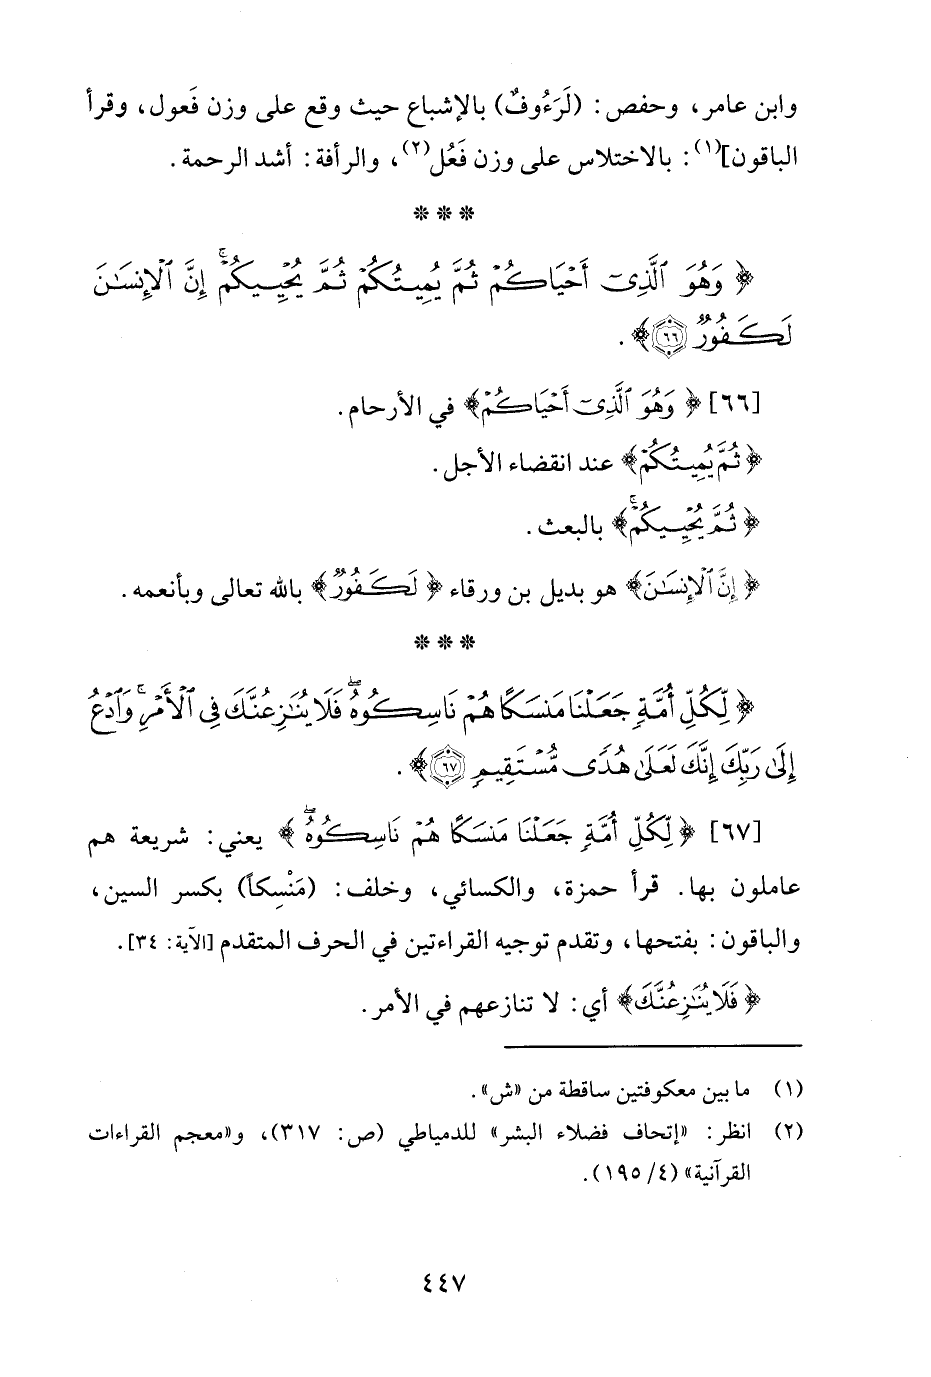 وابن عامر، وحفص: (لَرَءُوفٌ) بالإشباع حيث وقع على وزن فَعول، وقرأ
الباقون](١): بالاختلاس على وزن فَعُل(٢)، والرأفة: أشد الرحمة.
* * *
﴿ وَهُوَ ٱلَّذِىٓ أَحْيَاكُمْ ثُمَّ يُمِيتُكُمْ ثُمَّ يُحْيِيكُمْ ۗ إِنَّ ٱلْإِنسَـٰنَ
لَكَفُورٌ ٦٦﴾.
[٦٦] ﴿ وَهُوَ ٱلَّذِىٓ أَحْيَاكُمْ﴾ في الأرحام.
﴿ ثُمَّ يُمِيتُكُمْ﴾ عند انقضاء الأجل.
﴿ ثُمَّ يُحْيِيكُمْ ۗ﴾ بالبعث.
﴿ إِنَّ ٱلْإِنسَـٰنَ﴾ هو بديل بن ورقاء ﴿ لَكَفُورٌ﴾ بالله تعالى وبأنعمه.
* * *
﴿ لِّكُلِّ أُمَّةٍ جَعَلْنَا مَنسَكًا هُمْ نَاسِكُوهُ ۖ فَلَا يُنَـٰزِعُنَّكَ فِى ٱلْأَمْرِ ۚ وَٱدْعُ
إِلَىٰ رَبِّكَ إِنَّكَ لَعَلَىٰ هُدًى مُّسْتَقِيمٍ ٦٧﴾.
[٦٧] ﴿ لِّكُلِّ أُمَّةٍ جَعَلْنَا مَنسَكًا هُمْ نَاسِكُوهُ ۖ ﴾ يعني: شريعة هم
عاملون بها. قرأ حمزة، والكسائي، وخلف: (مَنْسِكاً) بكسر السين،
والباقون: بفتحها، وتقدم توجيه القراءتين في الحرف المتقدم [الآية: ٣٤].
﴿ فَلَا يُنَـٰزِعُنَّكَ﴾ أي: لا تنازعهم في الأمر.
(١) ما بين معكوفتين ساقطة من «ش».
(٢) انظر: «إتحاف فضلاء البشر» للدمياطي (ص: ٣١٧)، و«معجم القراءات
القرآنية» (٤/ ١٩٥).
٤٤٧